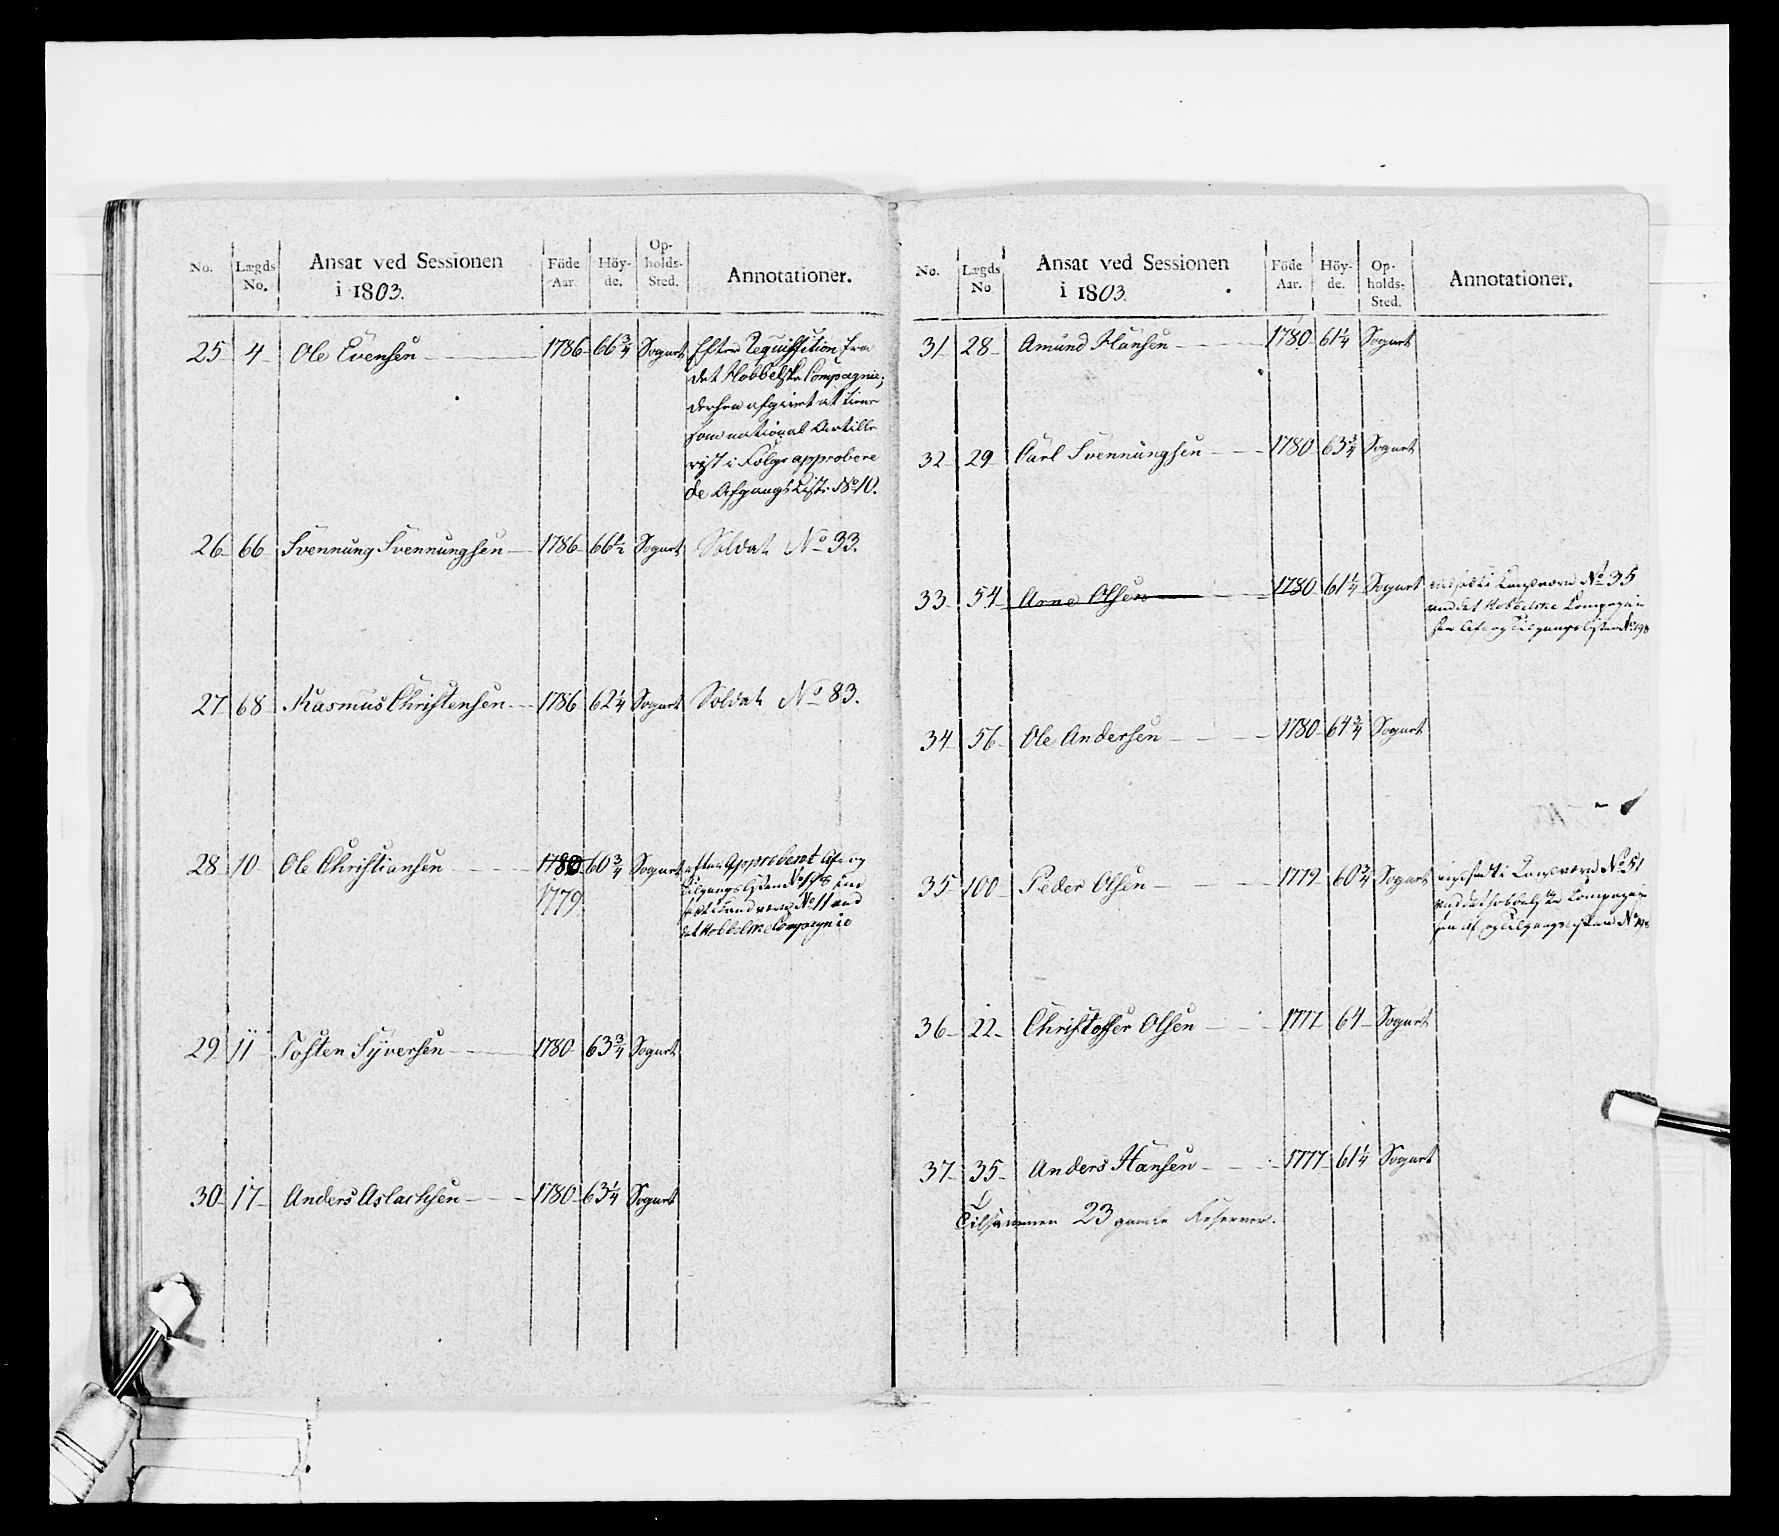 No. Lægds No. Ansat ved Sessionen i 1803. Föde Aar. Höyde. Opholds-Sted. Annotationer.
25 4 Ole Evensen 1786 66 3/4 Sognet Efter Requisition fra
det Hobbelske Compagnie;
dersen afgivet at tiene
som national Artille
rist i Følge approbere
de Afgangs Liste No 10.
26 66 Svennung Svennungsen 1786 66 1/2 Sognet Soldat No 33.
27 68 Rasmus Christensen 1786 62 1/4 Sognet Soldat No 83.
28 10 Ole Christiansen 1780 60 3/4 Sognet efter Approbent Af og
1779 Tilgangslisten No ind
sadt i Landværn No 11 ved
det Hobbelske Compagnie
29 11 Tosten Syversen 1780 63 3/4 Sognet
30 17 Anders Aslachsen 1780 63 1/4 Sognet
No. Lægds No Ansat ved Sessionen i 1803. Föde Aar. Höyde. Opholds-Sted. Annotationer.
31 28 Amund Hansen 1780 61 1/4 Sognet
32 29 Carl Svennungsen 1780 63 3/4 Sognet
33 54 Arne Olsen 1780 61 1/4 Sognet indsadt i Landværn No 35
ved det Hobbelske Compagni
Af og Tilgangslisten No
34 56 Ole Andersen 1780 64 3/4 Sognet
35 100 Peder Olsen 1779 60 3/4 Sognet indsadt i Landværn No 51
ved det Hobbelske Compagni
Af og Tilgangslisten No
36 22 Christoffer Olsen 1777 64 Sognet
37 35 Anders Hansen 1777 61 1/4 Sognet
Tilsammen 23 gamle Reserver.